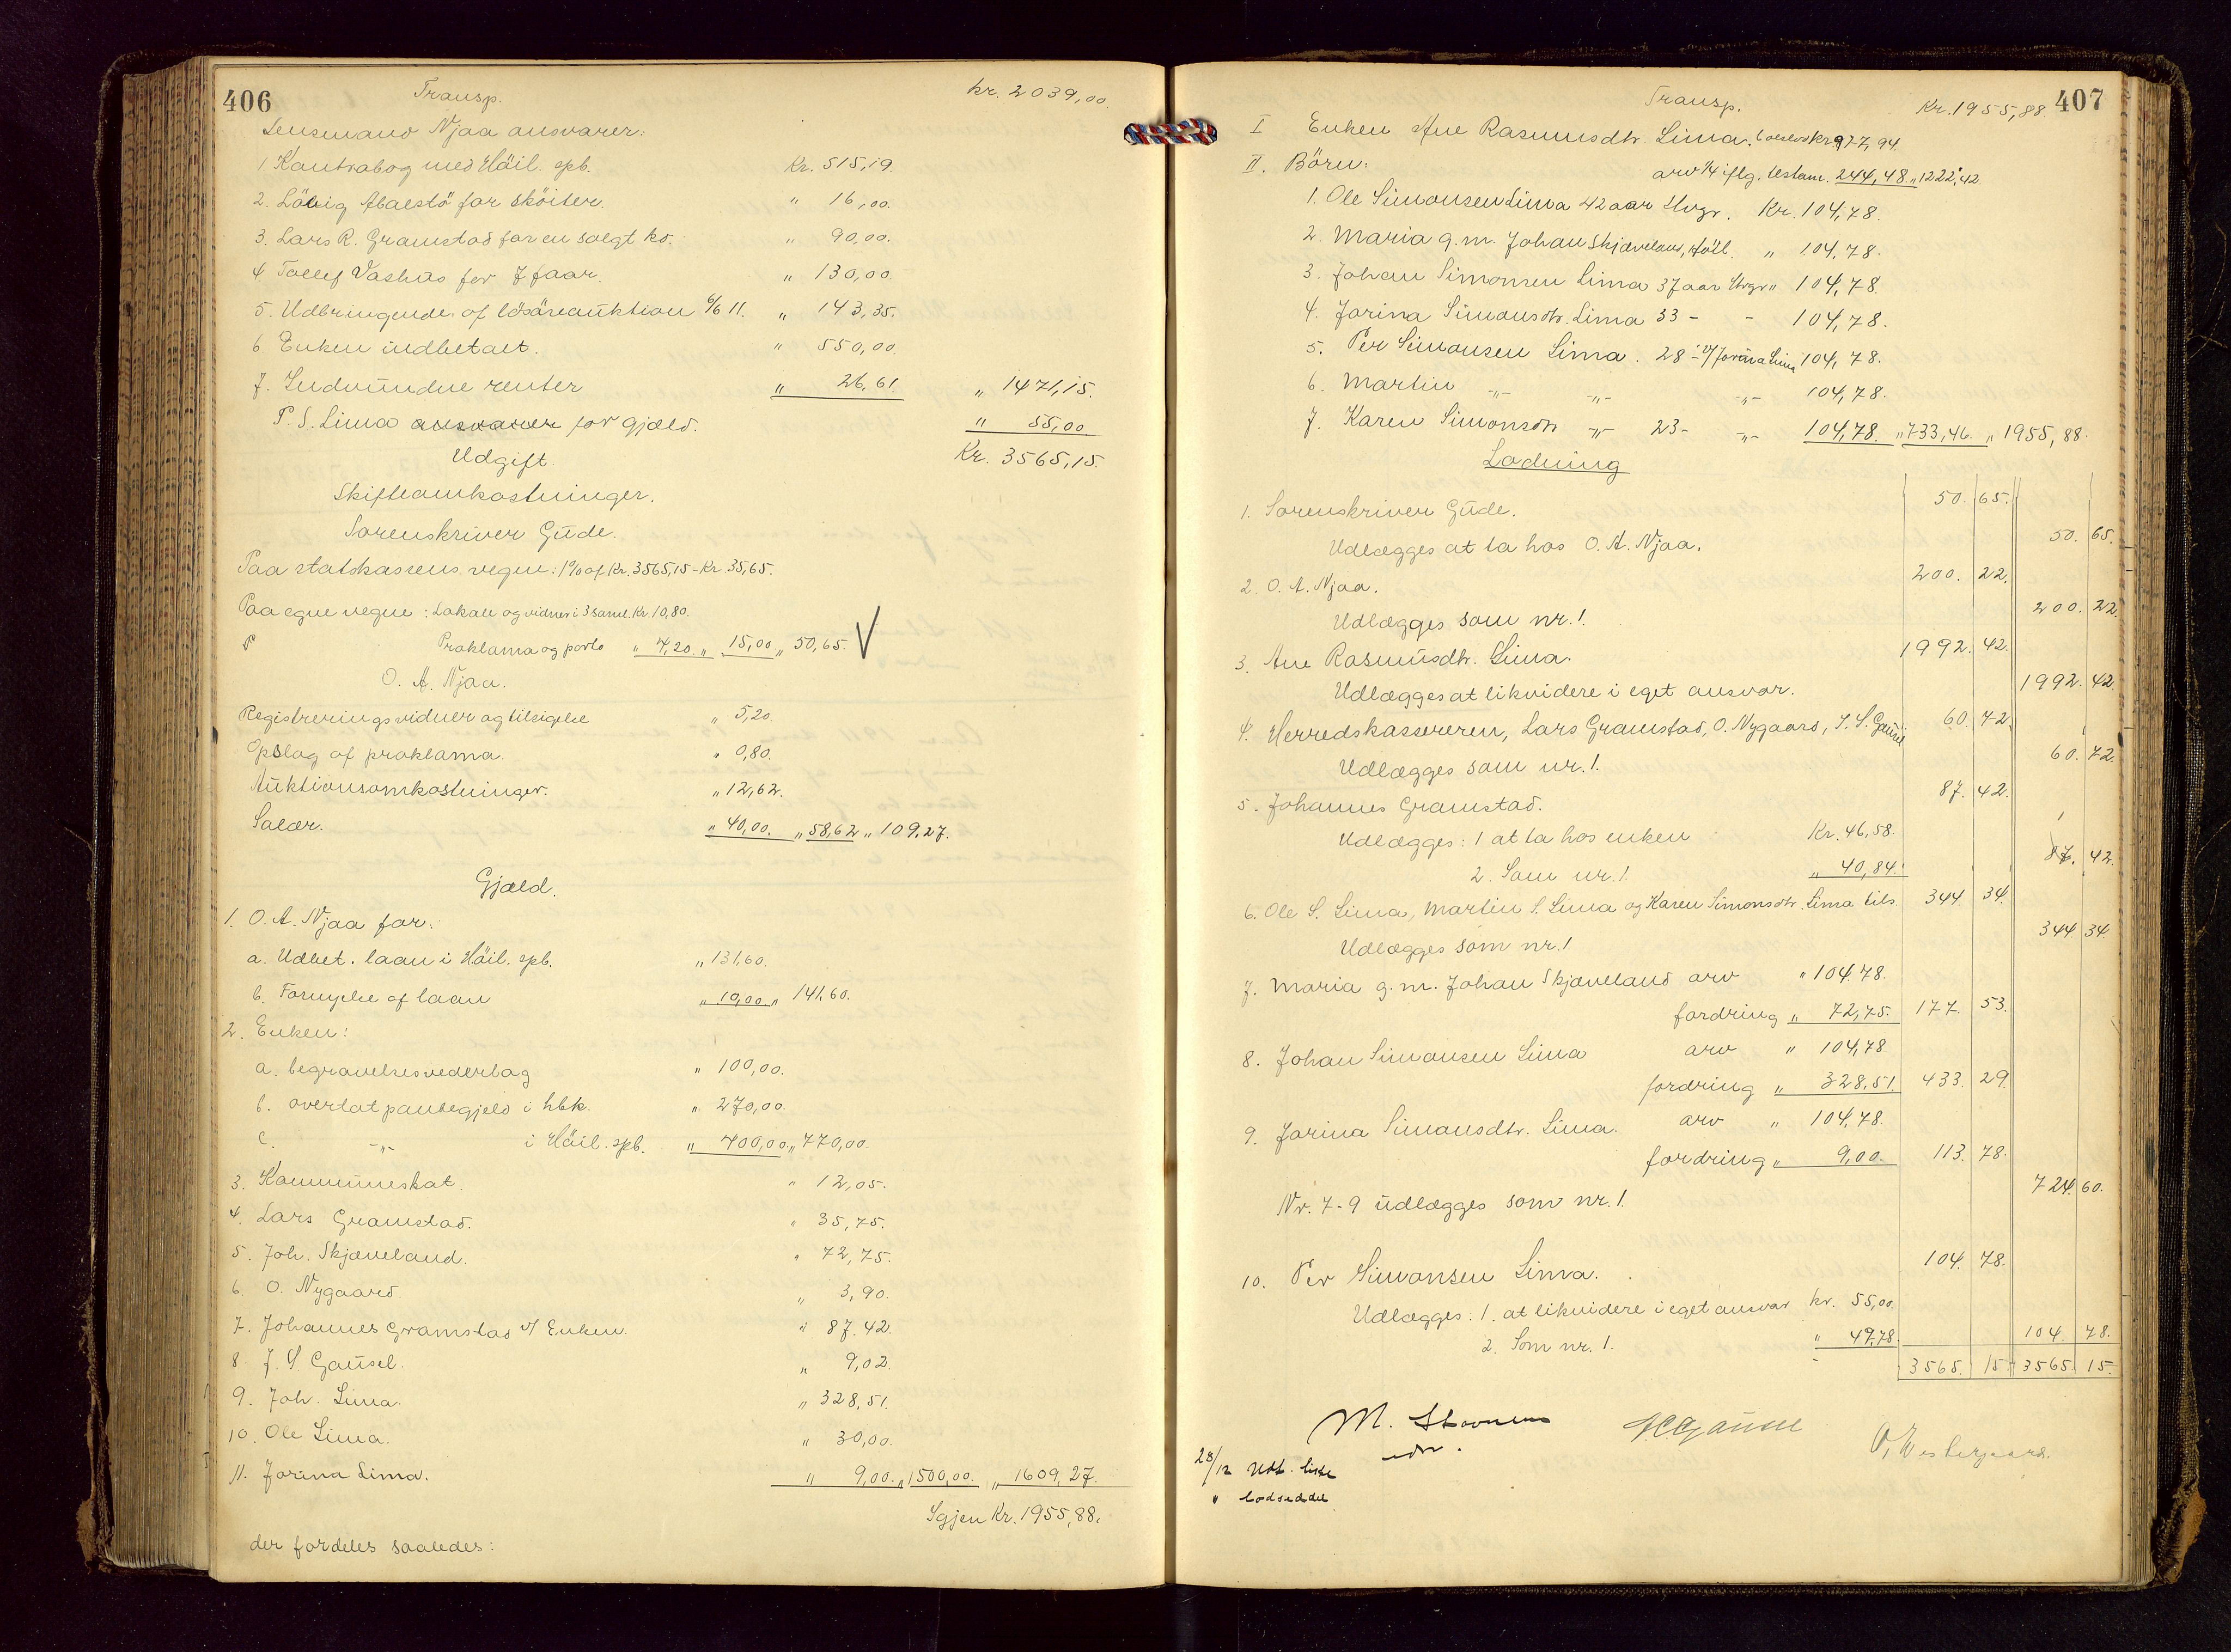 406
Transp. kr. 2039,00.
Lensmand Njaa ansvarer:
1 Kontrabog med Höil. spb. Kr. 515,19.
2. för sköiter. " 16,00.
3. Lars R. Gramstad for en solgt ko. " 90,00.
4 Tollef Vashus for 7 faar. " 130,00.
5. Udbringendes af lösöreauktion 6/6 11. " 143,35.
6 Enken indbetalt. " 550,00
7. Indvundne renter " 26,61. " 1471,15.
P. S. Lima ansvarer for gjæld. " 55,00
Udgift. Kr. 3565,15.
Skifteomkostninger.
Sorenskriver Gude.
Paa statskassens vegne: 1% af Kr. 3565,15 - Kr. 35,65.
Paa egne vegne: Lokale og vidner i 3 saml. Kr. 10,80.
P Proklama og porto " 4,20. " 15,00 " 50,65.
O. A. Njaa.
Registreringsvidner og tilsigelse " 5,20.
Opslag af proklama. " 0,80.
Auktionsomkostninger. " 12,62.
Salær. " 40,00. " 58,62 " 109,27.
Gjæld.
1. O. A. Njaa for:
a. Udbet. laan i Höil. spb. " 131,60.
b. Fornyelse af laan " 10,00 " 141,60.
2. Enken:
a. begravelsesvederlag " 100,00.
b. overtat pantegjeld i hbk. " 270,00.
c. -"- i Höil. spb. " 400,00 " 770,00.
3. Kommuneskat. " 12,05.
4. Lars Gramstad. " 35,75.
5. Joh. Skjæveland. " 72,75.
6. O. Nygaard. " 3,90.
7. Johannes Gramstad v/ Enken. " 87.42.
8 J. S. Gausel. " 9,02.
9. Joh. Lima. " 328,51.
10. Ole Lima. " 30,00.
11. Jorina Lima. " 9,00. " 1500,00. " 1609,27.
Igjen Kr. 1955,88.
der fordeles saaledes:
407
Transp. Kr. 1955,88
I Enken Ane Rasmusdtr Lima. boeslod kr 977,94.
II. Börn: arv 1/4 iflg. testam. 244,48. " 1222,42
1. Ole Simonsen Lima 42 aar Urgr. Kr. 104,78.
2. Maria g.m. Johan Skjæveland, Höil. " 104,78.
3. Johan Simonsen Lima 37 aar Urgr " 104,78.
4. Jorina Simonsdtr. Lima 33 - - 104,78.
5. Per Simonsen Lima. 28 - v/ Jorina Lima 104,78.
6. Martin -"- -"- -"- 104,78.
7. Karen Simonsdtr -"- 23 - -"- 104,78. " 733,46. " 1955,88.
Lodning
1. Sorenskriver Gude. 50. 65.
Udlægges at ta hos O. A. Njaa. 50. 65.
2. O. A. Njaa. 200. 22.
Udlægges som nr. 1. 200. 22.
3. Ane Rasmusdtr. Lima. 1992. 42.
Udlægges at likvidere i eget ansvar. 1992. 42.
4. Herredskassereren, Lars Gramstad, O. Nygaard, J. S. Gausel 60. 72.
Udlægges som nr. 1. 60. 72.
5. Johannes Gramstad. 87. 42.
Udlægges: 1 at ta hos enken Kr. 46,58.
2. Som nr. 1. " 40,84. 87. 42.
6. Ole S. Lima, Martin S. Lima og Karen Simonsdtr. Lima tils. 344. 34.
Udlægges som nr. 1 344. 34.
7. Maria g.m. Johan Skjæveland arv " 104.78.
fordring " 72,75. 177. 53.
8. Johan Simonsen Lima arv " 104,78
fordring " 328,51. 433. 29.
9. Jorina Simonsdtr. Lima. arv " 104,78.
fordring " 9,00. 113. 78.
Nr. 7-9 udlægges som nr. 1. 724. 60.
10. Per Simonsen Lima. 104. 78.
Udlægges: 1. at likvidere i eget ansvar kr. 55,00.
2. Som nr. 1. " 49,78. 104. 78.
3565. 15 3565. 15.
M.
28/12 Udt. liste
" lodseddel